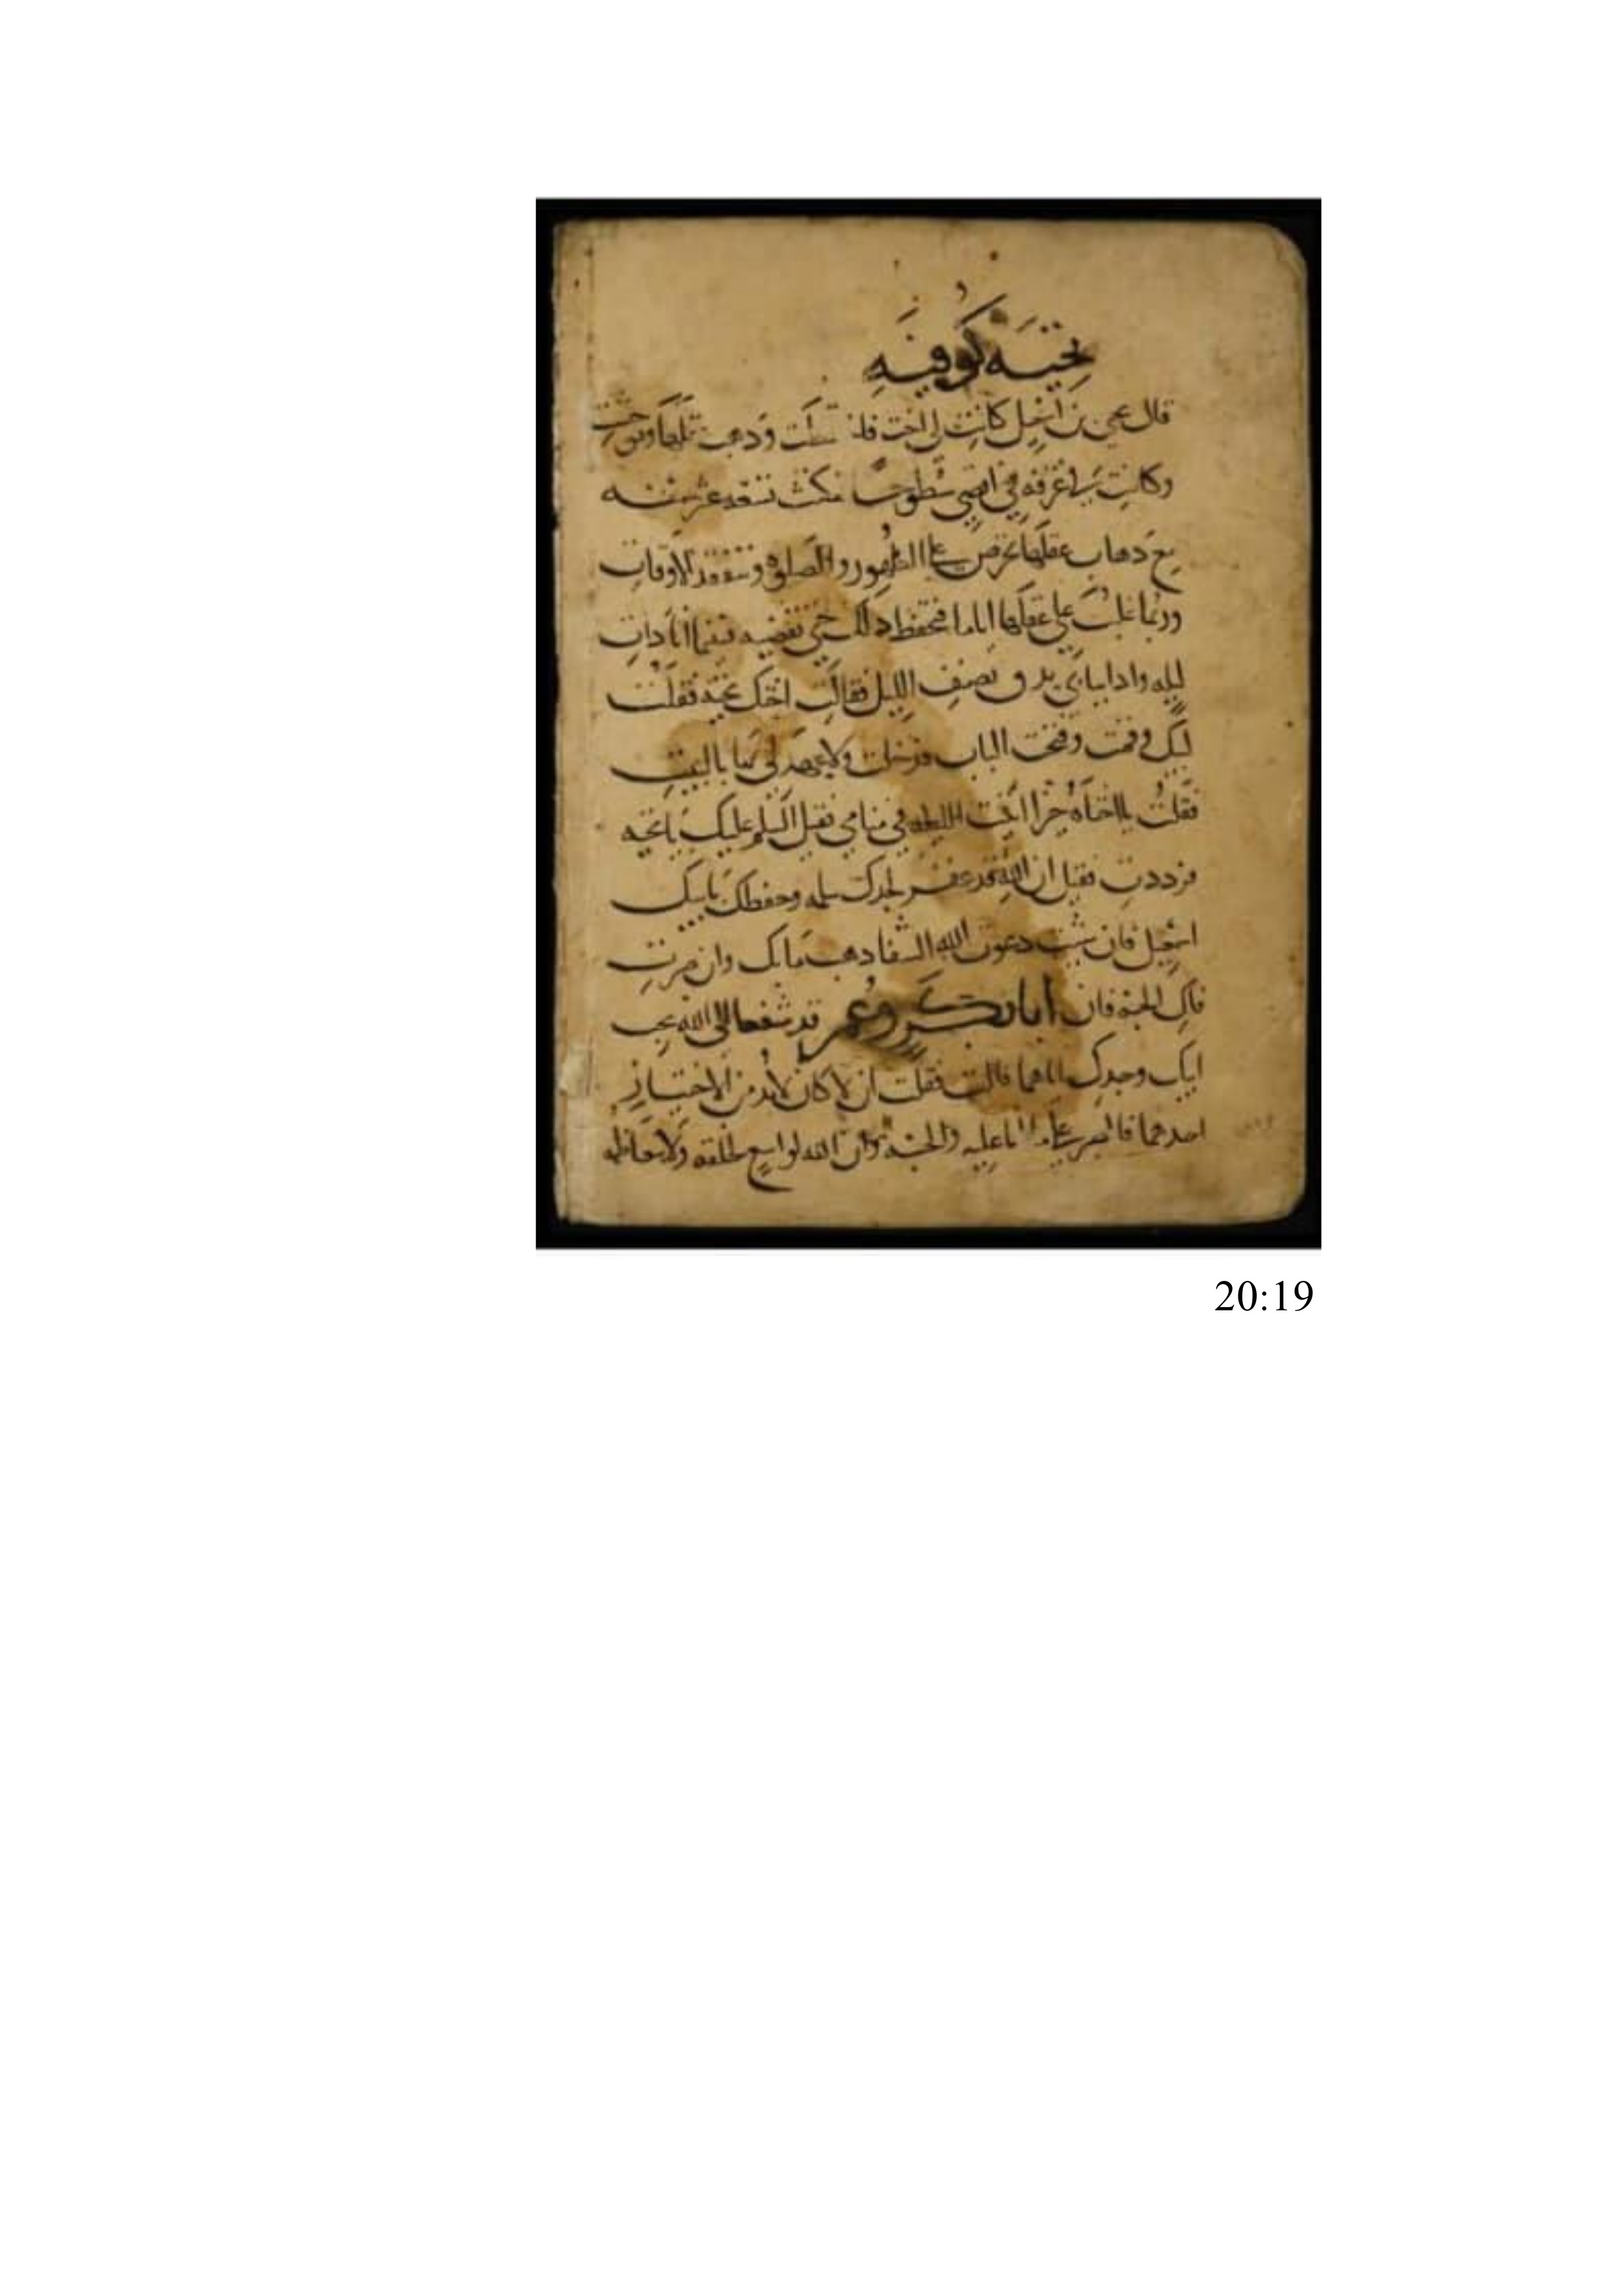 نخيَّه كوفيه
قال يحيى بن اسمعيل كانت لي اخت فاختلطت وذهب عقلها وتوحشت
وكانت في غرفه في اقصى سطوحنا فمكثت بضعه عشر سنه
مع ذهاب عقلها تحرص على الطهور والصلوة وتتفقد الاوقات
وربما غلبت على عقلها اياما فتحفظ ذلك حتى تقضيه فبينما انا ذات
ليله واذا ببابي يدق نصف الليل فقالت اختك نخيه فقلت
لبيك وقمت وفتحت الباب فدخلت ولا عهد لها بالبيت
فقلت يا اختاه خيرا اتيت الليله في منامي فقيل السلم عليك يا نخيه
فرددت فقيل ان الله قد غفر لجدك سلمه وحفظك بابيك
اسمعيل فان شئت دعوت الله الشفا ذهب ما بك وان صبرت
فلك الجنة فان ابا بكر وعمر قد شفعا الى الله بحب
ابيك وجدك اياهما قالت فقلت ان كان لا بد من الاختيار
احدهما فالصبر على ما انا عليه والجنة وان الله لواسع لخلقه ولا يتعاظمه
20:19